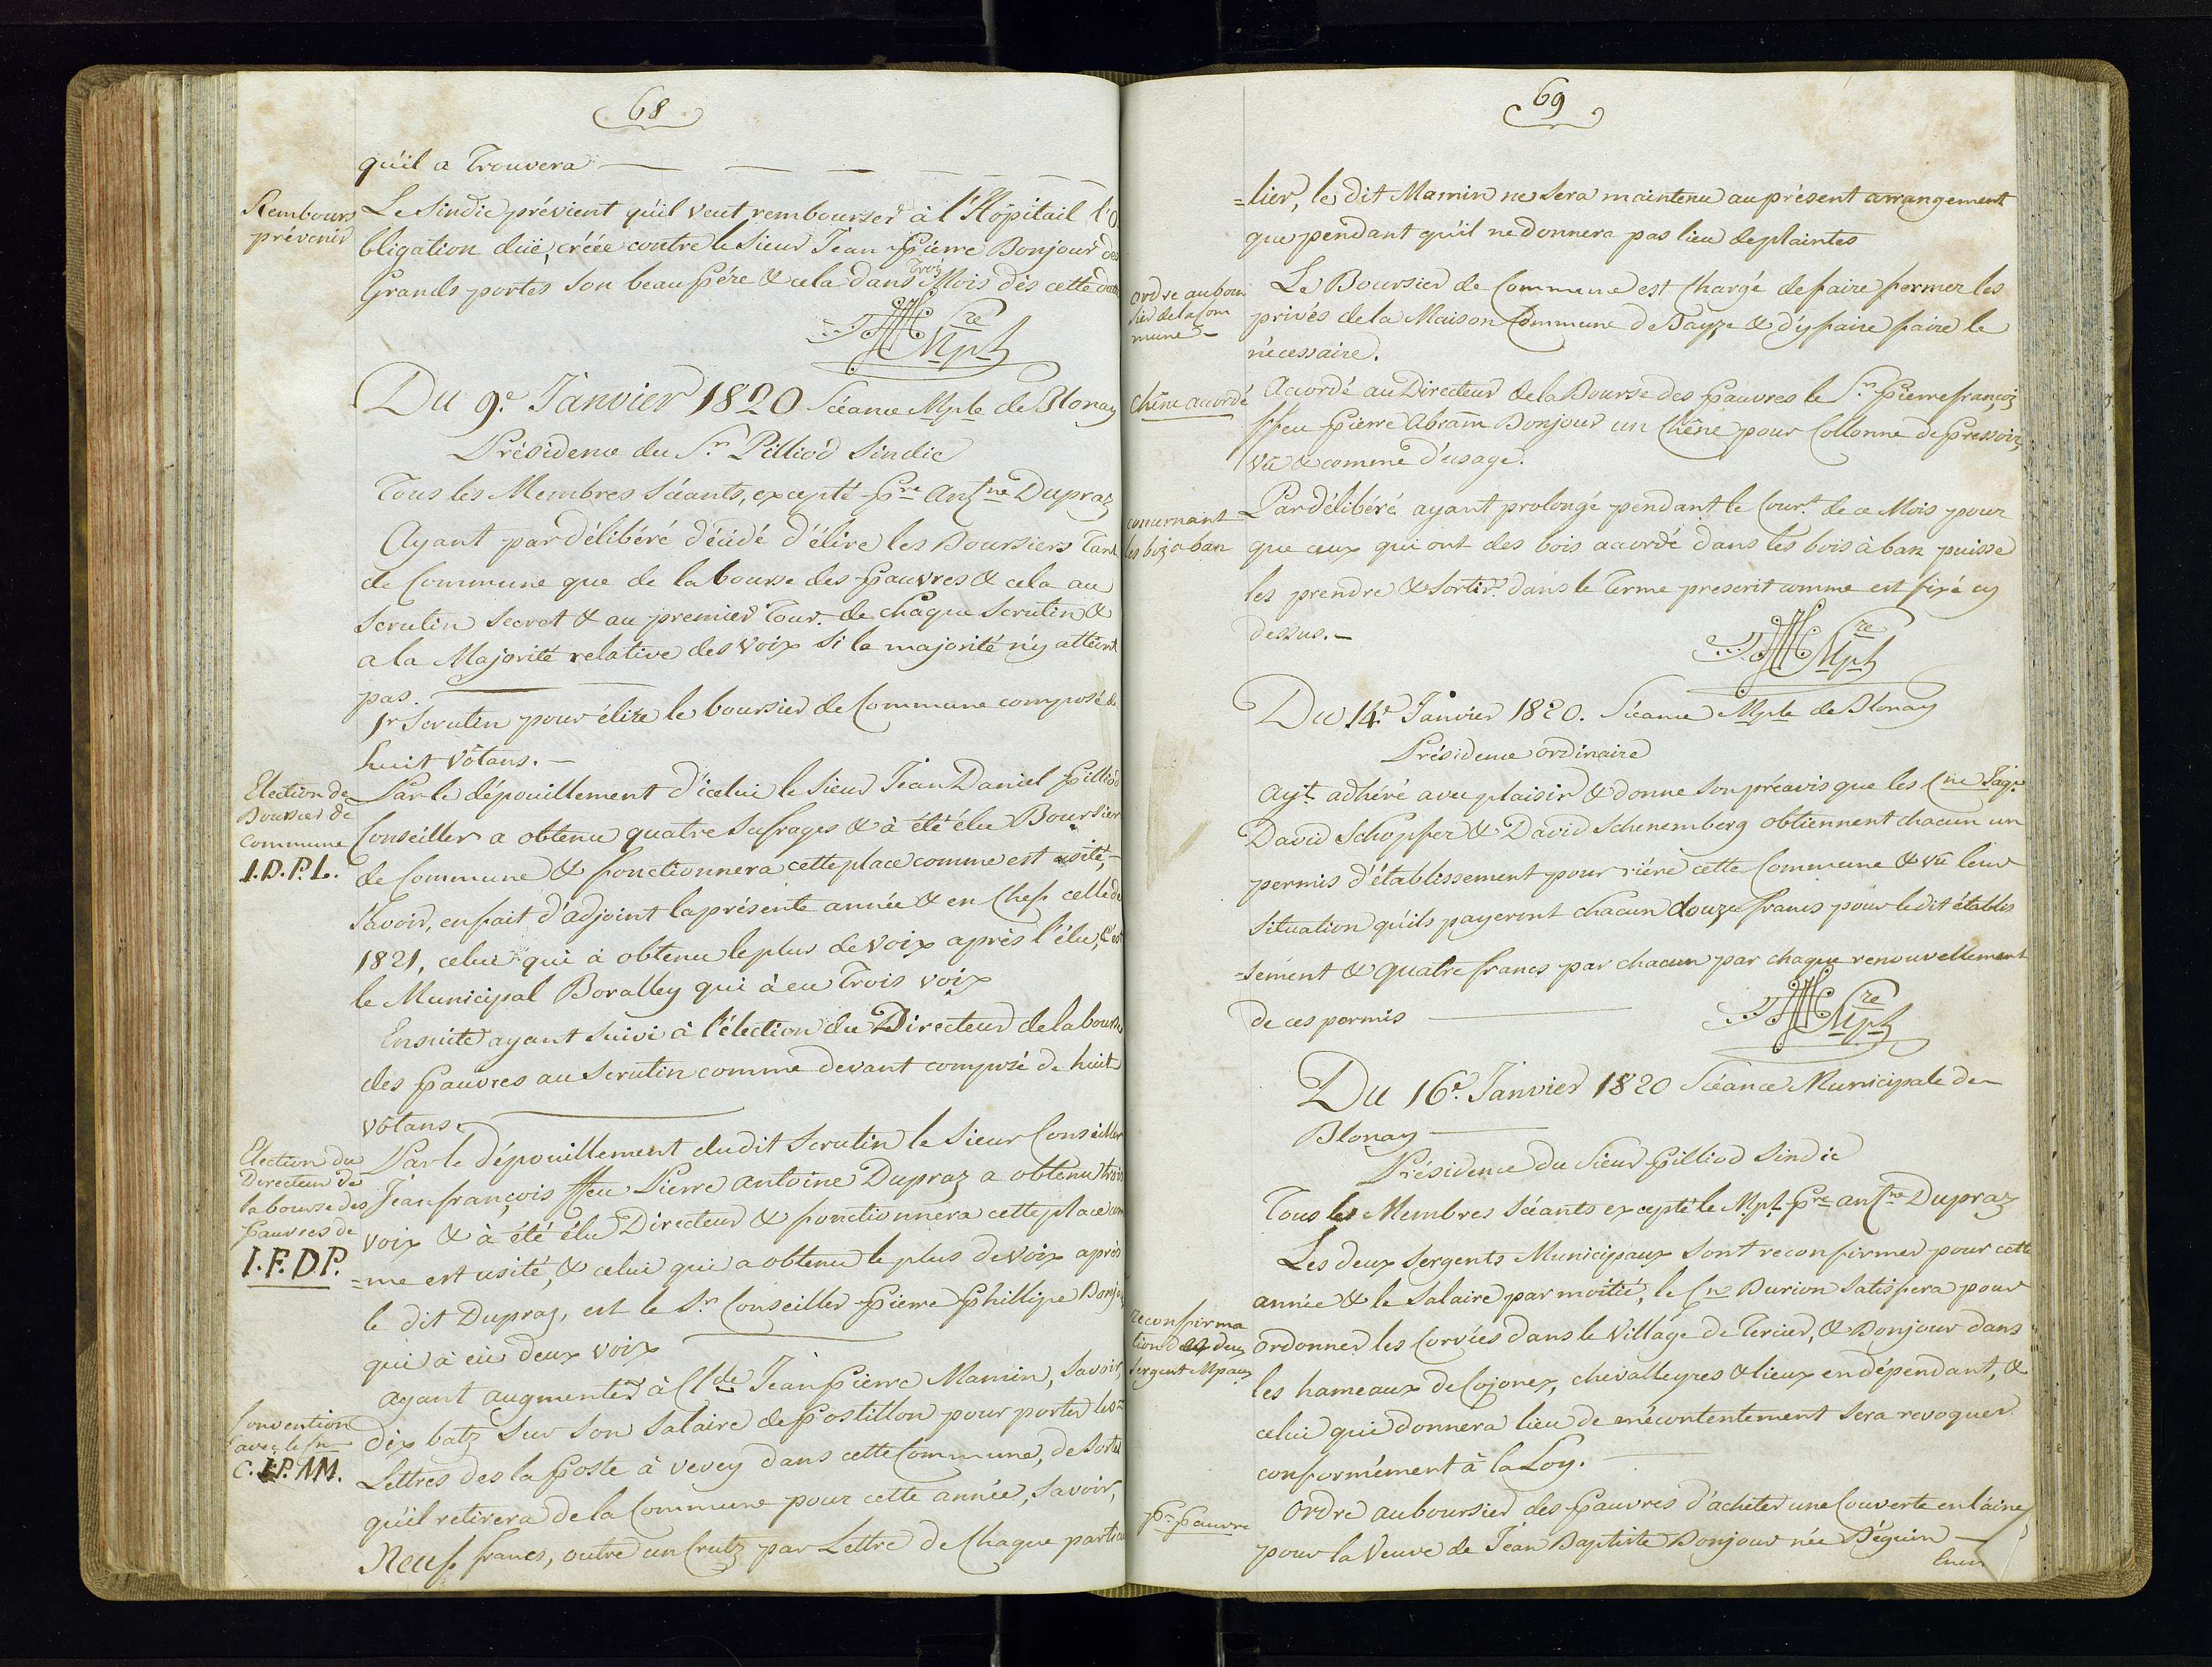 68
qu'il a Trouvera
Rembours
prévenir
Le Sindic prévient qu'il veut rembourser à l'Hôpitail l'o
bligation düe, créée contre le Sieur Jean Pierre Bonjour des
Grands portes son beau Pére & cela dans Trois Mois dès cette date
Du 9.e Janvier 1820 Séance Mple de Blonay
Présidence du Sr. Pilliod Sindic
Tous les Membres Séants, excepté Pre Antne Dupraz
Ayant par délibéré décidé d'élire les Boursiers Tant
de Commune que de la bourse des Pauvres & cela au
Scrutin Secret & au premier Tour de chaque Scrutin &
a la Majorité relative des voix si la majorité n'y atteint
pas.
1r Scrutin pour élire le boursier de Commune composé de
huit vôtans.
Election de
Boursier de
Commune
J.D.P.L.
Par le dépouillement d'icelui le Sieur Jean Daniel Pilliod
Conseiller a obtenu quatre Sufrages & à été élu Boursier
de Commune & fonctionnera cette place comme est usité,
Savoir, en fait d'adjoint la présente année & en Chef celle de
1821, celui qui à obtenu le plus de voix après l'élu, C'est
le Municipal Boralley qui à eu Trois voix
Ensuite ayant suivi à l'élection du Directeur de la bourse
des Pauvres au Scrutin comme devant composé de huit
vôtans.
Election du
Directeur de
la bourse des
Pauvres de
J.F.D.P.
Par le dépouillement du dit Scrutin le Sieur Conseiller
Jean françois ffeu Pierre Antoine Dupraz a obtenu trois
voix & à été élu Directeur & fonctionnera cette place com
=me est usité, & celui qui a obtenu le plus de voix après
le dit Dupraz, est le Sr. Conseiller Pierre Phillipe Bonjour
qui à eü deux voix
Convention
avec le Sn
C.J.P.MM.
ayant augmenter à Clde Jean Pierre Mamin, Savoir,
dix batz Sur son Salaire de Postillon pour porter les
Lettres des la Poste à vevey dans cette Commune, de sorte
qu'il retirera de la Commune pour cette année, Savoir,
Neuf francs, outre un Crutz par Lettre de Chaque particu
69
=lier, le dit Mamin ne sera maintenu au présent arrangement
que pendant qu'il ne donnera pas lieu de plaintes
ordre au bour
sier de la Com
mune
Le Boursier de Commune est Chargé de faire fermer les
privés de la Maison Commune de Bayse & d'y faire faire le
nécessaire.
Chêne accordé
Accordé au Directeur de la Bourse des Pauvres le Sr. Pierre françois
ffeu Pierre Abram Bonjour un Chêne pour Collonne de Pressoir,
vu & comme d'usage.
concernant
les boiz a ban
Par délibéré ayant prolongé pendant le Cour.t de ce Mois pour
que ceux qui ont des bois accordé dans les bois à ban puisse
les prendre & sortir dans le Terme prescrit comme est fixé cy
dessus.
Du 14.e Janvier 1820. Séance Mple de Blonay
Présidence ordinaire
Ayt. adhéré avec plaisir & donne son préavis que les Cne Jaqs
David Schöpfer & David Schenemberg obtiennent chacun un
permis d'établissement pour riére cette Commune & vû leur
Situation qu'ils payeront chacun douze francs pour le dit établis
=sement & quatre francs par chacun par chaque renouvellement
de ces permis
Du 16.e Janvier 1820 Séance Municipale de
Blonay
Présidence du Sieur Pilliod Sindic
Tous les Membres Séants excepté le Mpl. Pre antne Dupraz
reconfirma
tion des deux
Sergent Mpaux
Les deux Sergents Municipaux sont reconfirmer pour cette
année & le Salaire par moitié, le Cn Burion Satisfera pour
ordonner les Corvées dans le Village de Tercier, & Bonjour dans
les hameaux de Cojonex, chevalleyres & lieux en dépendant, &
celui qui donnera lieu de mécontentement sera revoquer
conformément à la Loy.
Pr. Pauvre
ordre au boursier des Pauvres d'acheter une Couverte en laine
pour la Veuve de Jean Baptiste Bonjour née Béguin